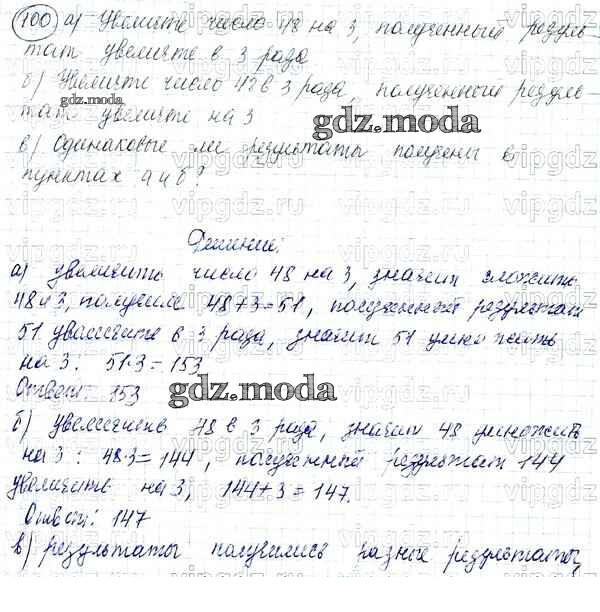 100 а) Увеличте число 48 на 3, полученный резуль-
тат увеличте в 3 раза
б) Увеличте число 48 в 3 раза, полученный резуль-
gdz.moda
тат увеличте на 3
gdz.moda
в) Одинаковые ли результаты получены в
пунктах а и б?
Решение:
а) увеличить число 48 на 3, значит сложить
48 и 3, получим 48+3=51, полученный результат
51 увеличите в 3 раза, значит 51 умножить
на 3: 51·3=153
Ответ: 153
gdz.moda
б) увеличить 48 в 3 раза, значит 48 умножить
на 3: 48·3=144, полученный результат 144
увеличить на 3, 144+3=147.
Ответ: 147
в) результаты получились разные результаты,
vipgdz.ru